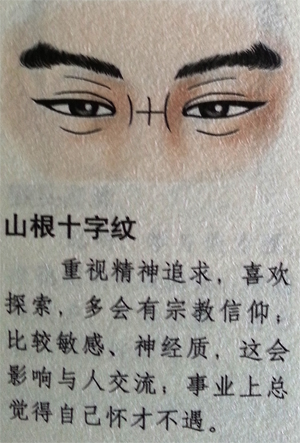 山根十字纹
重视精神追求，喜欢
探索，多会有宗教信仰；
比较敏感、神经质，这会
影响与人交流；事业上总
觉得自己怀才不遇。